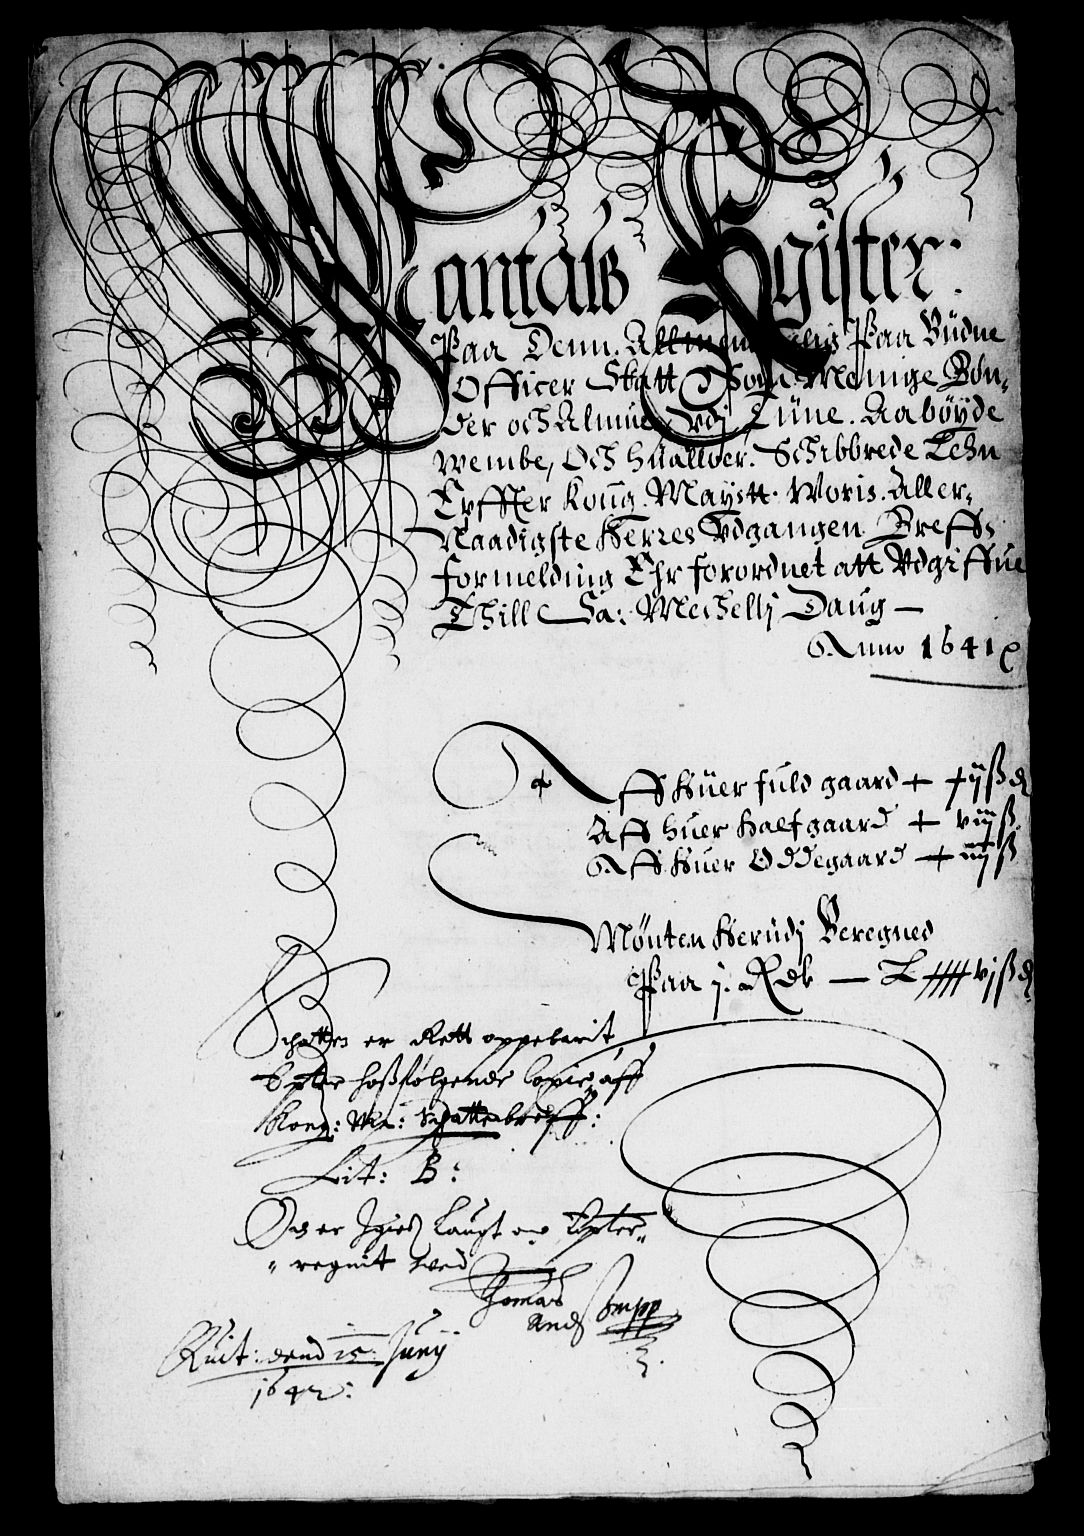 Mantals Register.
Paa Denn. Allmindelig Paa Büdne
Officer Skatt Som Menige Bøn-
der och Almue Vdj Lüne. Aabøyde
Wembe, Och Hualløer. Schibbrede Lehn
Epffter Konng. Maystt. Woris. Aller-
Naadigste Herres Vdgangen Breffs
formelding Ehr forordnet att Vdgiffue
Thill Sa: Mechellj Daug —
Anno 1641
Aff Huer fuld gaard + xijß
Aff huer Halfgaard + vijß
Aff Huer Øddegaard + iiijß
Mønten Herudj Beregned
Paa j. Rdr —
Schatten er Rett oppebarit,
Epter hoßfølgende Copie aff
Kong: Ma: Schattebreff:
Lit: B:
Och er Igield Laugt och Epter-
regnit wed
Thomas
And
Ruit: dend 15: Junij
1642: